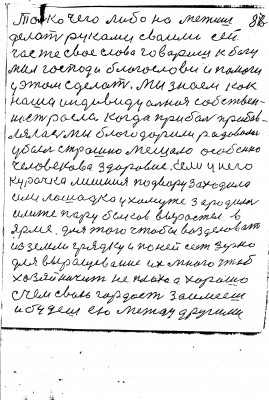 Только чего либо на метим 88
делат руками своими сей
час те свое слова говорили к богу
мил господи благослови и помоги
у этом сделат. Мы знаем как
наша индивидуалная собствен-
ност расла, когда прибал прибав-
лялас мы благодарили радовалис
убыл страшно мешало особенно
человекова здаровие, если у него
курачка лишния подвору заходила
или лошадка ухамуте
или те пару быков вырасты в
ярме. для того чтобы возделоват
из земли грядку и поней сет зурно
для выращевание их много чтоб
хозяйничит не плохо а харашо
с чем свою гардост заимееш
и будеш ею между другими